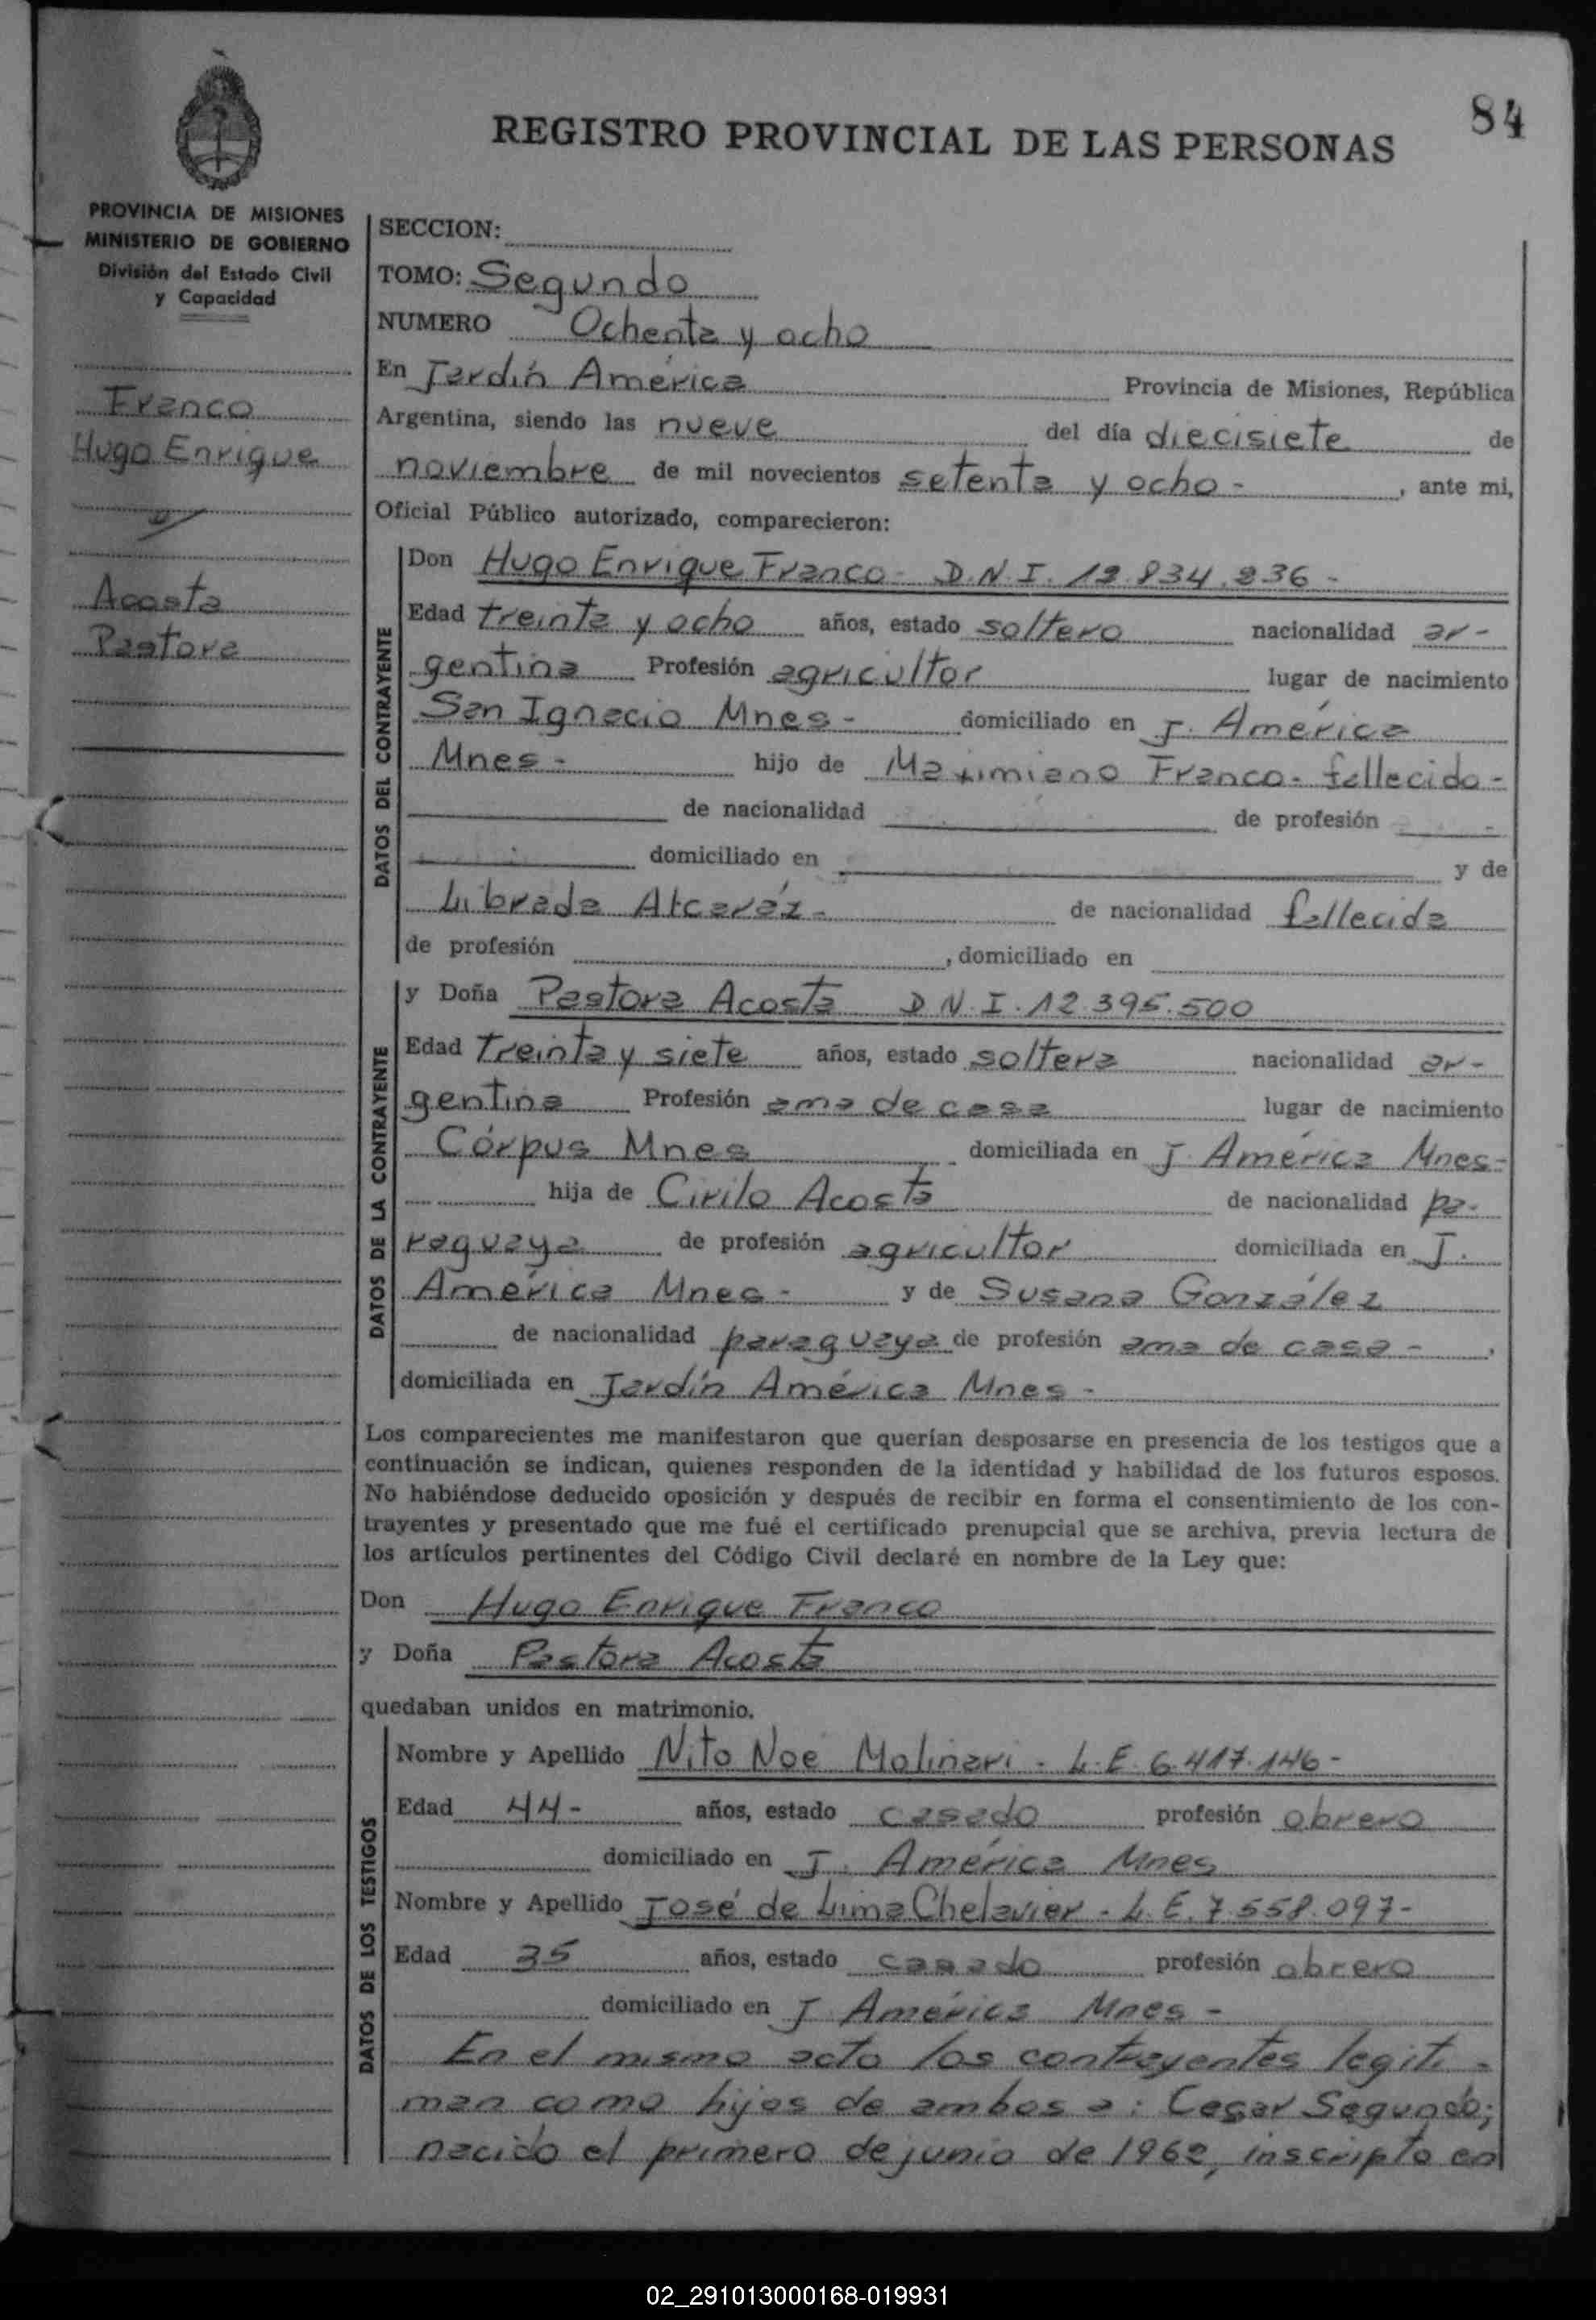 84
REGISTRO PROVINCIAL DE LAS PERSONAS
PROVINCIA DE MISIONES
MINISTERIO DE GOBIERNO
División del Estado Civil
y Capacidad
Franco
Hugo Enrique
y
Acosta
Pastora
SECCION:
TOMO: Segundo
NUMERO Ochenta y ocho
En Jardín América Provincia de Misiones, República
Argentina, siendo las nueve del día diecisiete de
noviembre de mil novecientos setenta y ocho - , ante mi,
Oficial Público autorizado, comparecieron:
DATOS DEL CONTRAYENTE
Don Hugo Enrique Franco - D.N.I.
Edad treinta y ocho años, estado soltero nacionalidad ar-
gentina Profesión agricultor lugar de nacimiento
San Ignacio Mnes - domiciliado en J. América
Mnes - hijo de Maximiano Franco - fallecido -
de nacionalidad de profesión
domiciliado en y de
Librada Alcaráz - de nacionalidad fallecida
de profesión , domiciliado en
DATOS DE LA CONTRAYENTE
y Doña Pastora Acosta D.N.I. 12.395.500
Edad treinta y siete años, estado soltera nacionalidad ar-
gentina Profesión ama de casa lugar de nacimiento
Córpus Mnes domiciliada en J. América Mnes-
hija de Cirilo Acosta de nacionalidad pa-
raguaya de profesión agricultor domiciliada en J.
América Mnes - y de Susana González
de nacionalidad paraguaya de profesión ama de casa - ,
domiciliada en Jardín América Mnes -
Los comparecientes me manifestaron que querían desposarse en presencia de los testigos que a
continuación se indican, quienes responden de la identidad y habilidad de los futuros esposos.
No habiéndose deducido oposición y después de recibir en forma el consentimiento de los con-
trayentes y presentado que me fué el certificado prenupcial que se archiva, previa lectura de
los artículos pertinentes del Código Civil declaré en nombre de la Ley que:
Don Hugo Enrique Franco
y Doña Pastora Acosta
quedaban unidos en matrimonio.
DATOS DE LOS TESTIGOS
Nombre y Apellido Nito Noé Molinari - L.E. 6.417.146 -
Edad 44 - años, estado casado profesión obrero
domiciliado en J. América Mnes
Nombre y Apellido José de Lima Chelavier - L.E. 7.558.097 -
Edad 35 años, estado casado profesión obrero
domiciliado en J América Mnes -
En el mismo acto los contrayentes legiti -
man como hijos de ambos a : Cesar Segundo;
nacido el primero de junio de 1962, inscripto en
02_291013000168-019931